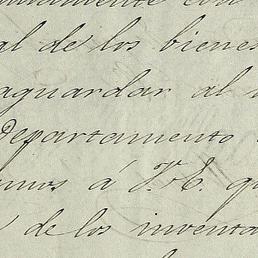 al de los bienes
aguardar al
Departamento
á V. E. qu
de los inventa